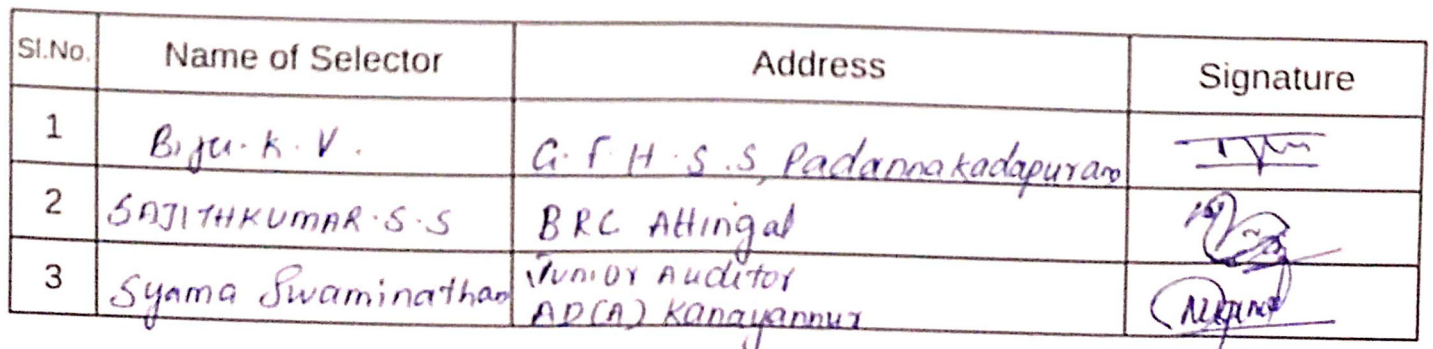 Sl.No. Name of Selector Address Signature
1 Biju. K. V. G. F. H. S. S, Padannakadapuram
2 SAJITHKUMAR. S. S BRC Attingal
3 Syama Swaminathan Junior Auditor
AD(A) Kanayannur